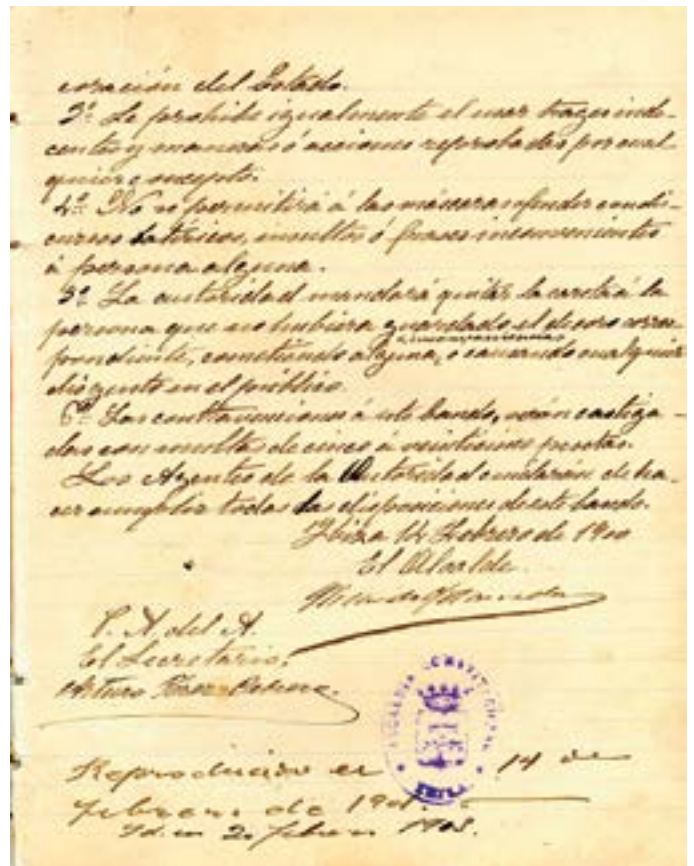 coración del Estado.
3ª Se prohibe igualmente el usar trages inde-
centes y maneras ó acciones reprobadas por cual-
quier concepto.
4ª No se permitirá á las máscaras ofender con dis-
cursos satíricos, insultos ó frases inconvenientes
á persona alguna.
5ª La autoridad mandará quitar la careta á la
persona que no hubiera guardado el decoro corres-
inconveniencia
pondiente, cometiendo alguna, o causando cualquier
disgusto en el público.
6ª Las contravenciones á este bando, serán castiga-
das con multas de cinco á veinticinco pesetas.
Los Agentes de la Autoridad cuidarán de ha-
cer cumplir todas las disposiciones de este bando.
Ibiza 14 Febrero de 1900
El Alcalde
P. A. del A.
El Secretario,
Arturo Perez
ALCALDIA CONSTITUCIONAL
IBIZA
Reproducido en 14 de
febrero de 1901.
Id. en 2 febrero 1903.